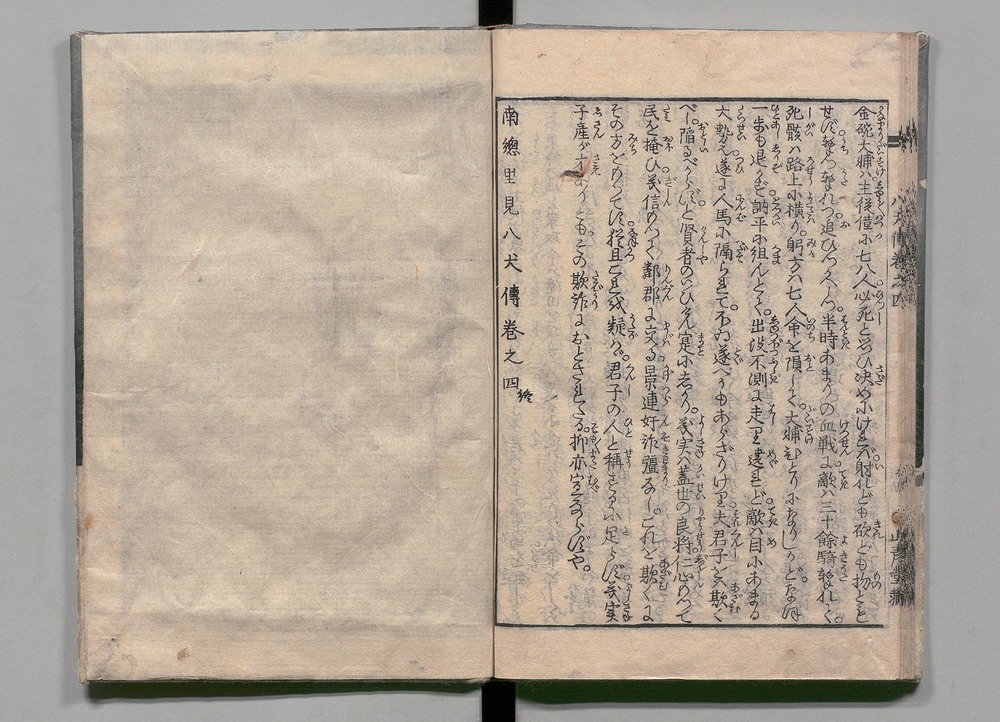 金碗大輔ハ主従僅に七八人必死と思ひ決めにけれバ射れども砍ども物ともせず
撃つ撃れつ追ひつ半時あまりの血戦に敵ハ三十餘騎撃れて
死骸ハ路上に横り躬方ハ七人命を隕して大輔ひとりになりしかどなほ
一歩も退かず訥平に組んとて出没不測に走り遶れど敵ハ目にあまる
大勢なれバ遂に人馬に隔られて不の遂べうもあらざりけり夫君子ハ欺く
べし陥るべからずと賢者のいひけん寔に老たり義実ハ蓋世の良将仁心もつて
民を掩ひ義信もて鄰郡に交る景連奸詐彊なしこれを欺くに
その方をもつてす猜且これを疑ハバ君子の人と稱するに足らず義実
子産が才ありともその欺詐におとされざる抑亦宜ならずや。
南總里見八犬傳巻之四終
八犬傳巻之四
山青堂藏